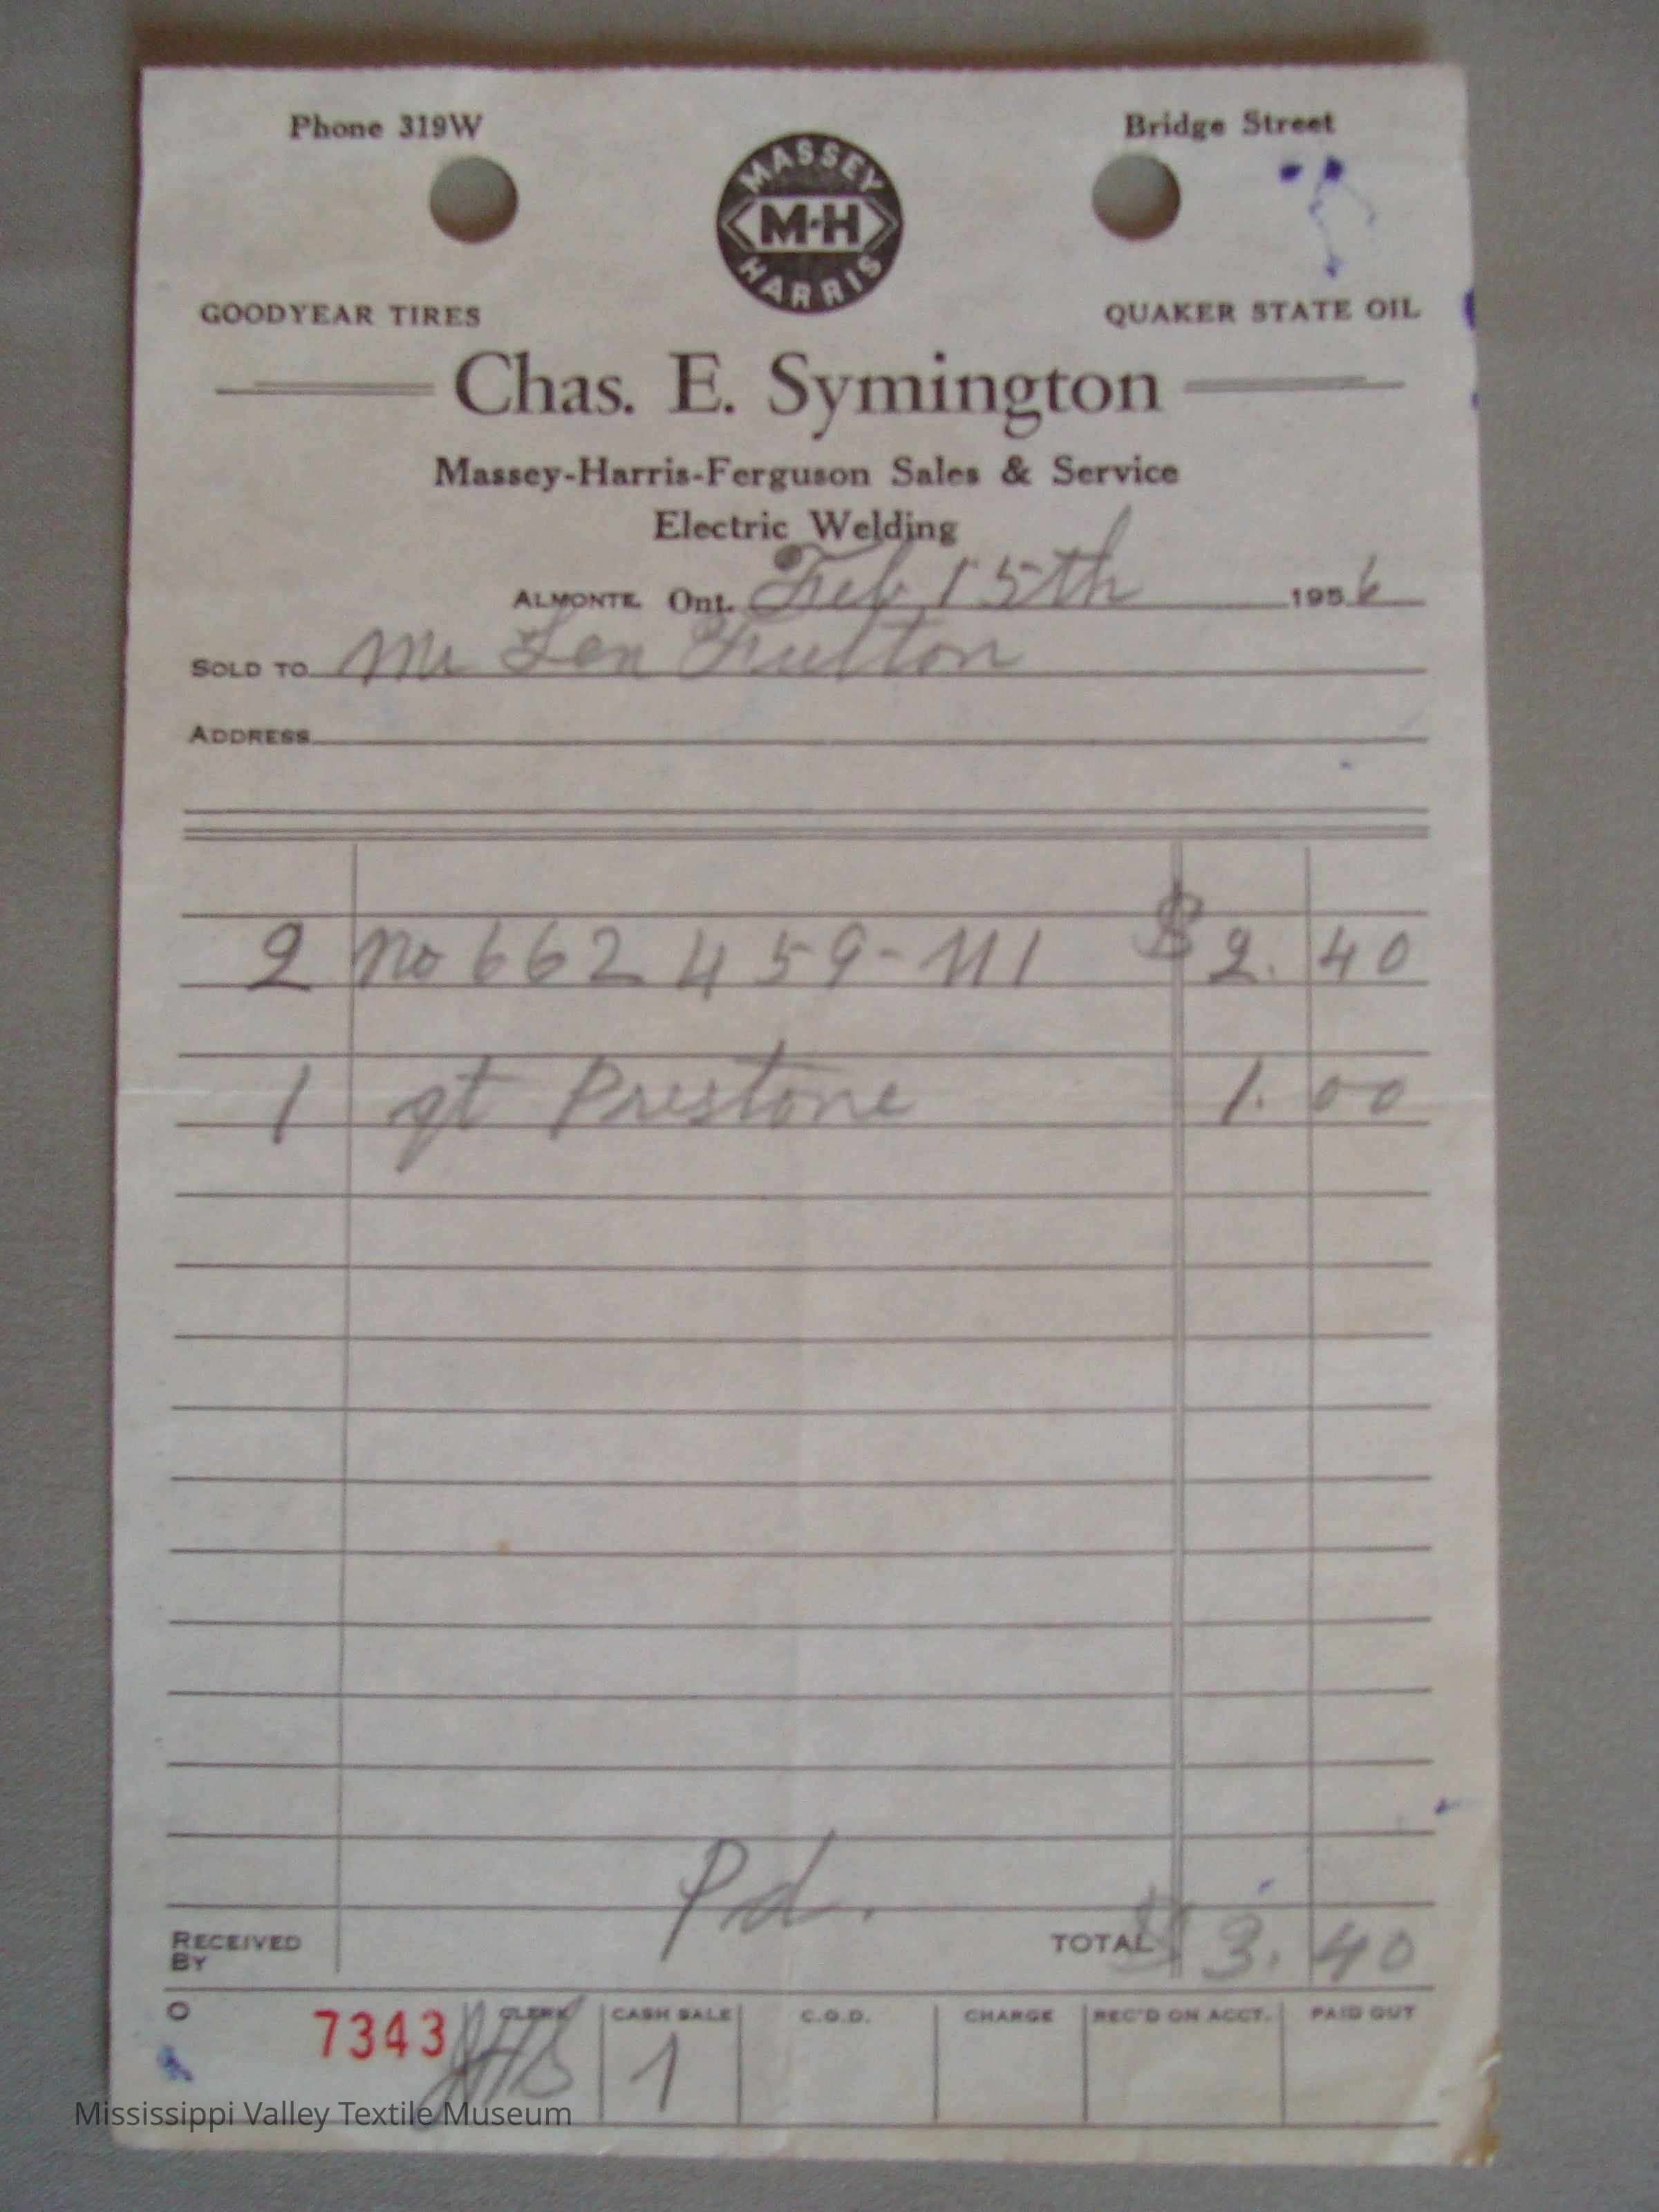 Phone 319W
Bridge Street
MASSEY
M-H
HARRIS
GOODYEAR TIRES
QUAKER STATE OIL
Chas. E. Symington
Massey-Harris-Ferguson Sales & Service
Electric Welding
ALMONTE Ont. Feb 15th 1956
SOLD TO Mr Len Fulton
ADDRESS
2 No 662 459-M1 $2.40
1 qt Prestone 1.00
Pd.
RECEIVED BY
TOTAL $3.40
7343 CLERK CASH SALE C.O.D. CHARGE REC'D ON ACCT. PAID OUT
1
Mississippi Valley Textile Museum